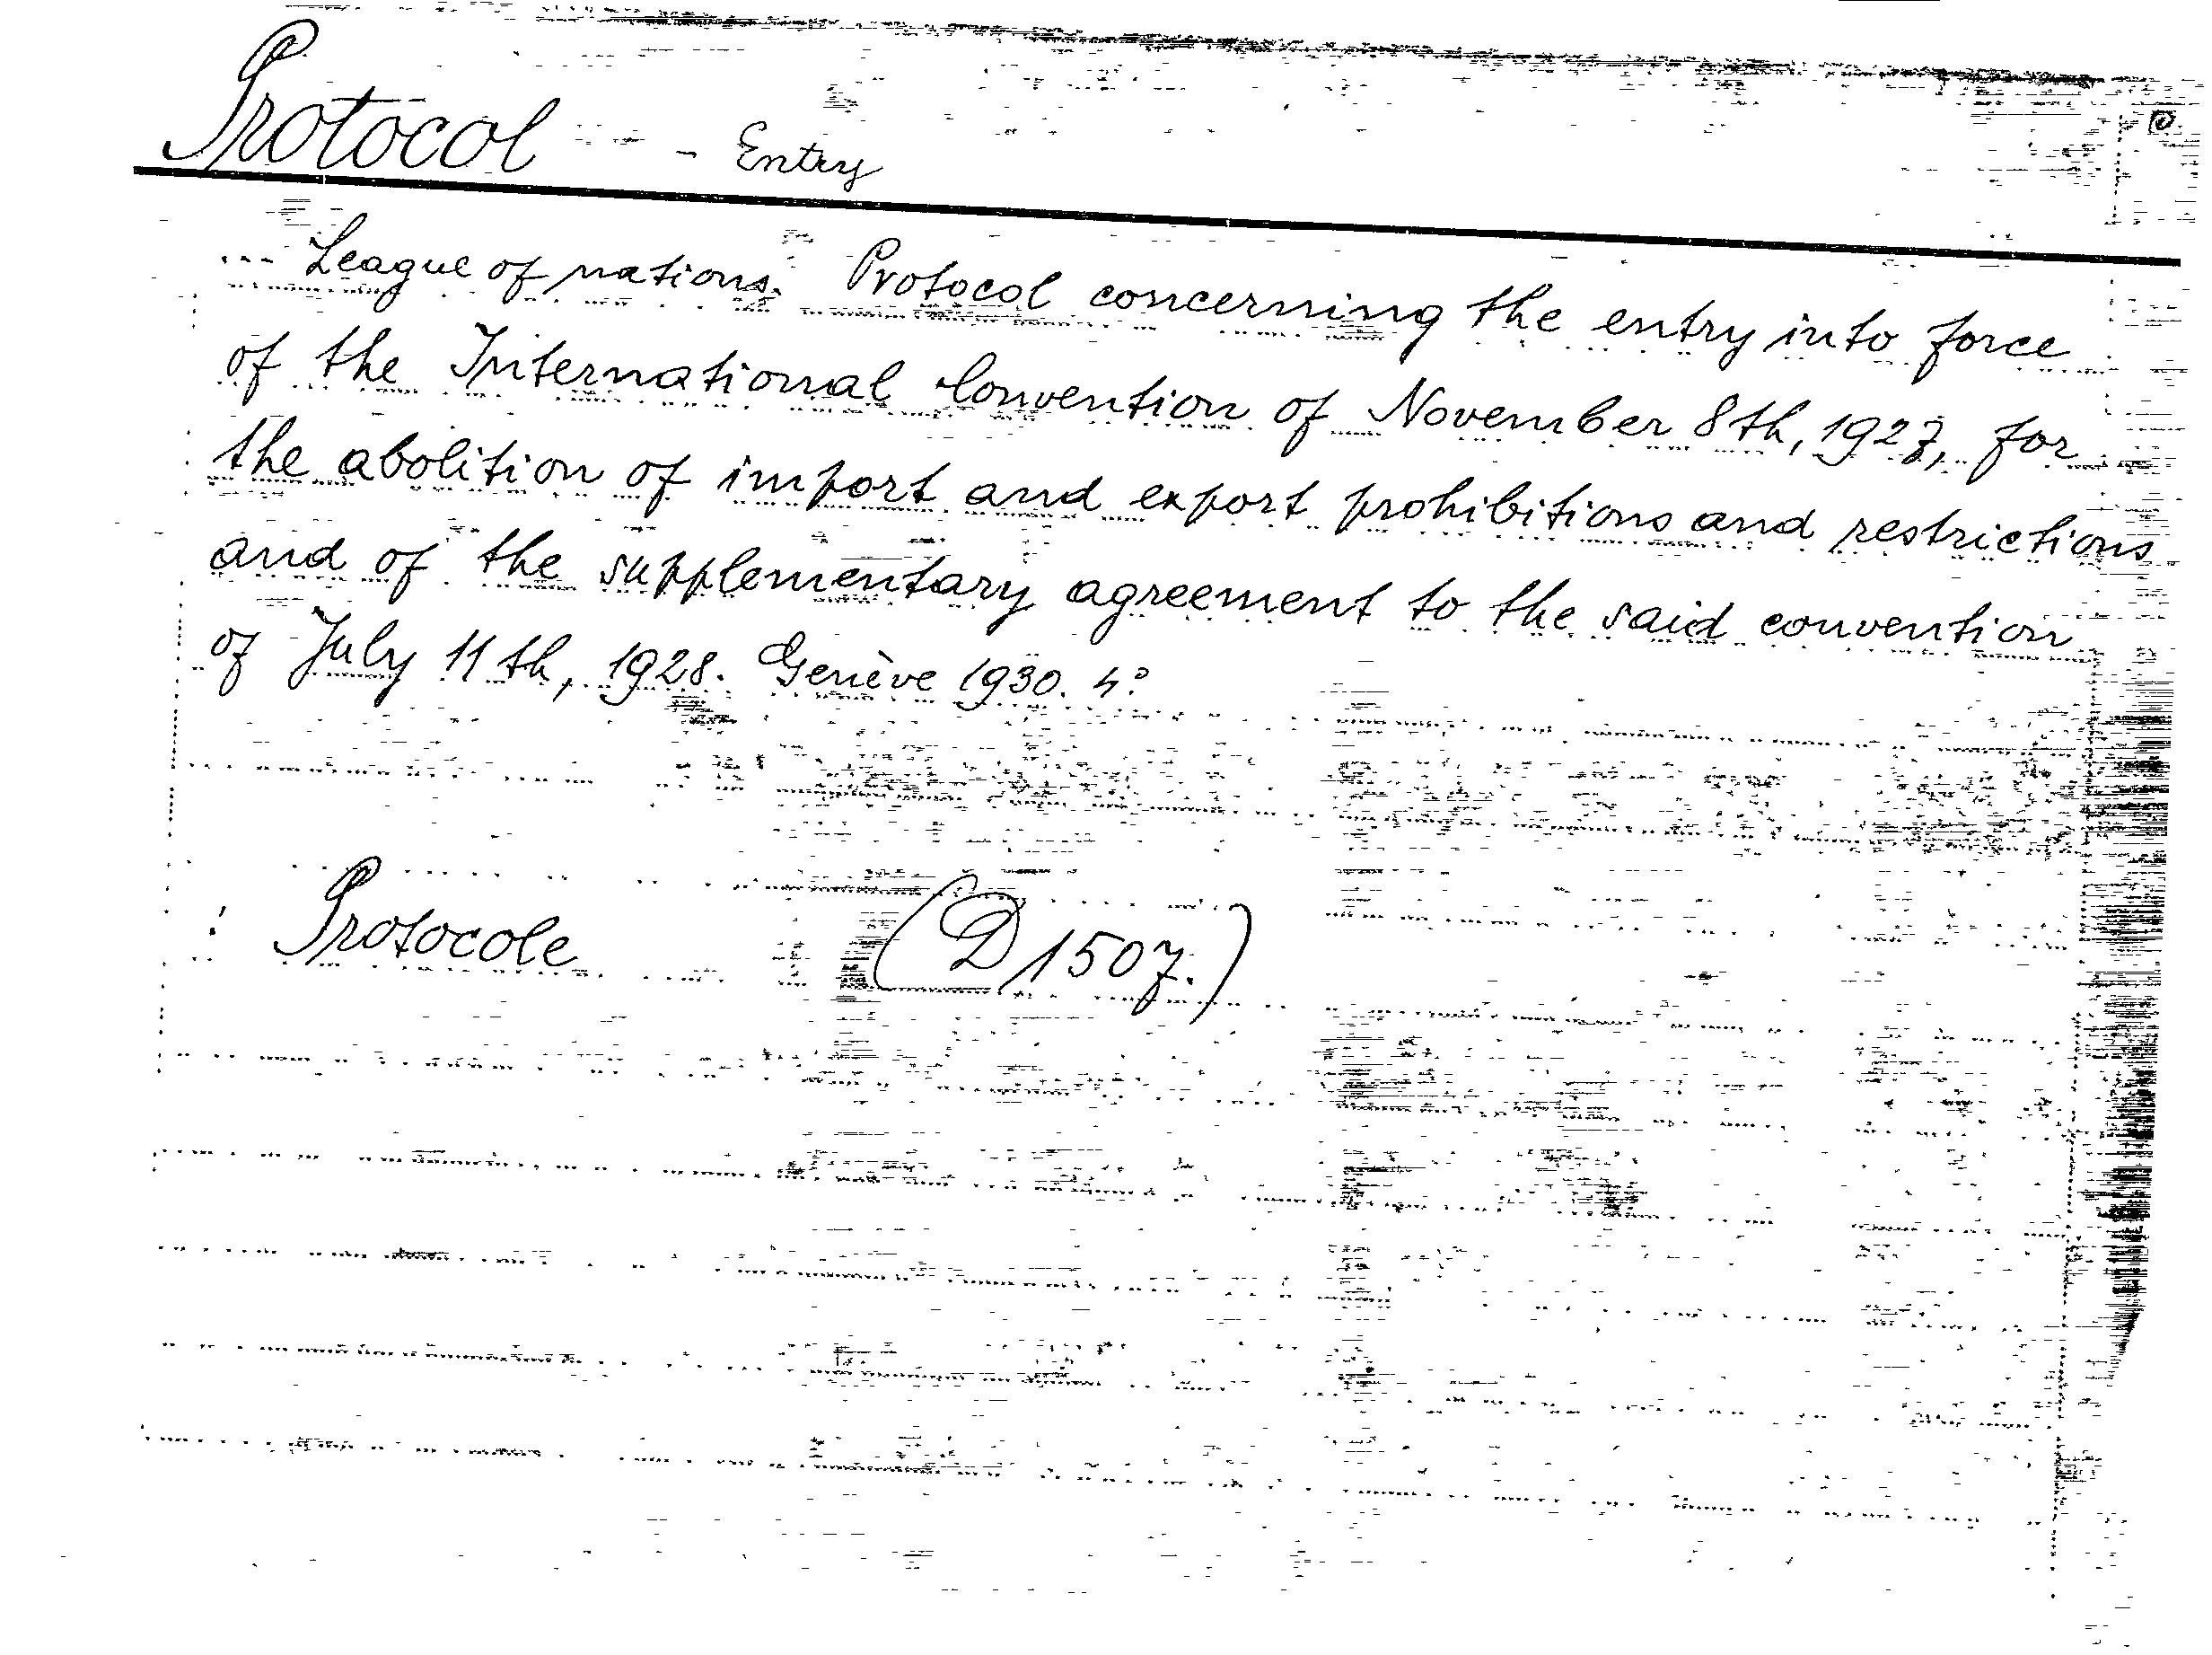 Protocol - Entry
--- League of nations. Protocol concerning the entry into force
of the International Convention of November 8th, 1927, for
the abolition of import and export prohibitions and restrictions
and of the supplementary agreement to the said convention
of July 11th, 1928. Genève 1930. 4°
: Protocole (D 1507.)